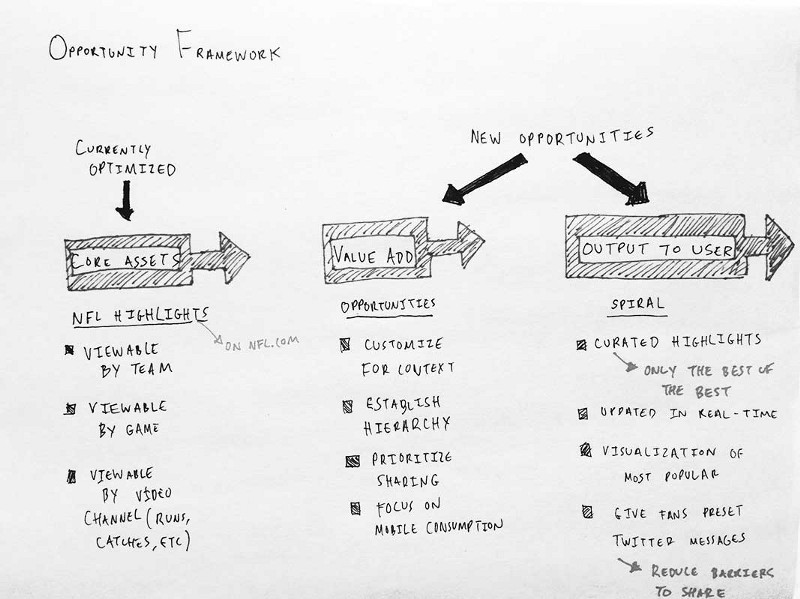 OPPORTUNITY FRAMEWORK
CURRENTLY
OPTIMIZED
NEW OPPORTUNITIES
CORE ASSETS
VALUE ADD
OUTPUT TO USER
NFL HIGHLIGHTS
ON NFL.COM
VIEWABLE
BY TEAM
VIEWABLE
BY GAME
VIEWABLE
BY VIDEO
CHANNEL (RUNS,
CATCHES, ETC)
OPPORTUNITIES
CUSTOMIZE
FOR CONTEXT
ESTABLISH
HIERARCHY
PRIORITIZE
SHARING
FOCUS ON
MOBILE CONSUMPTION
SPIRAL
CURATED HIGHLIGHTS
ONLY THE BEST OF
THE BEST
UPDATED IN REAL-TIME
VISUALIZATION OF
MOST POPULAR
GIVE FANS PRESET
TWITTER MESSAGES
REDUCE BARRIERS
TO SHARE